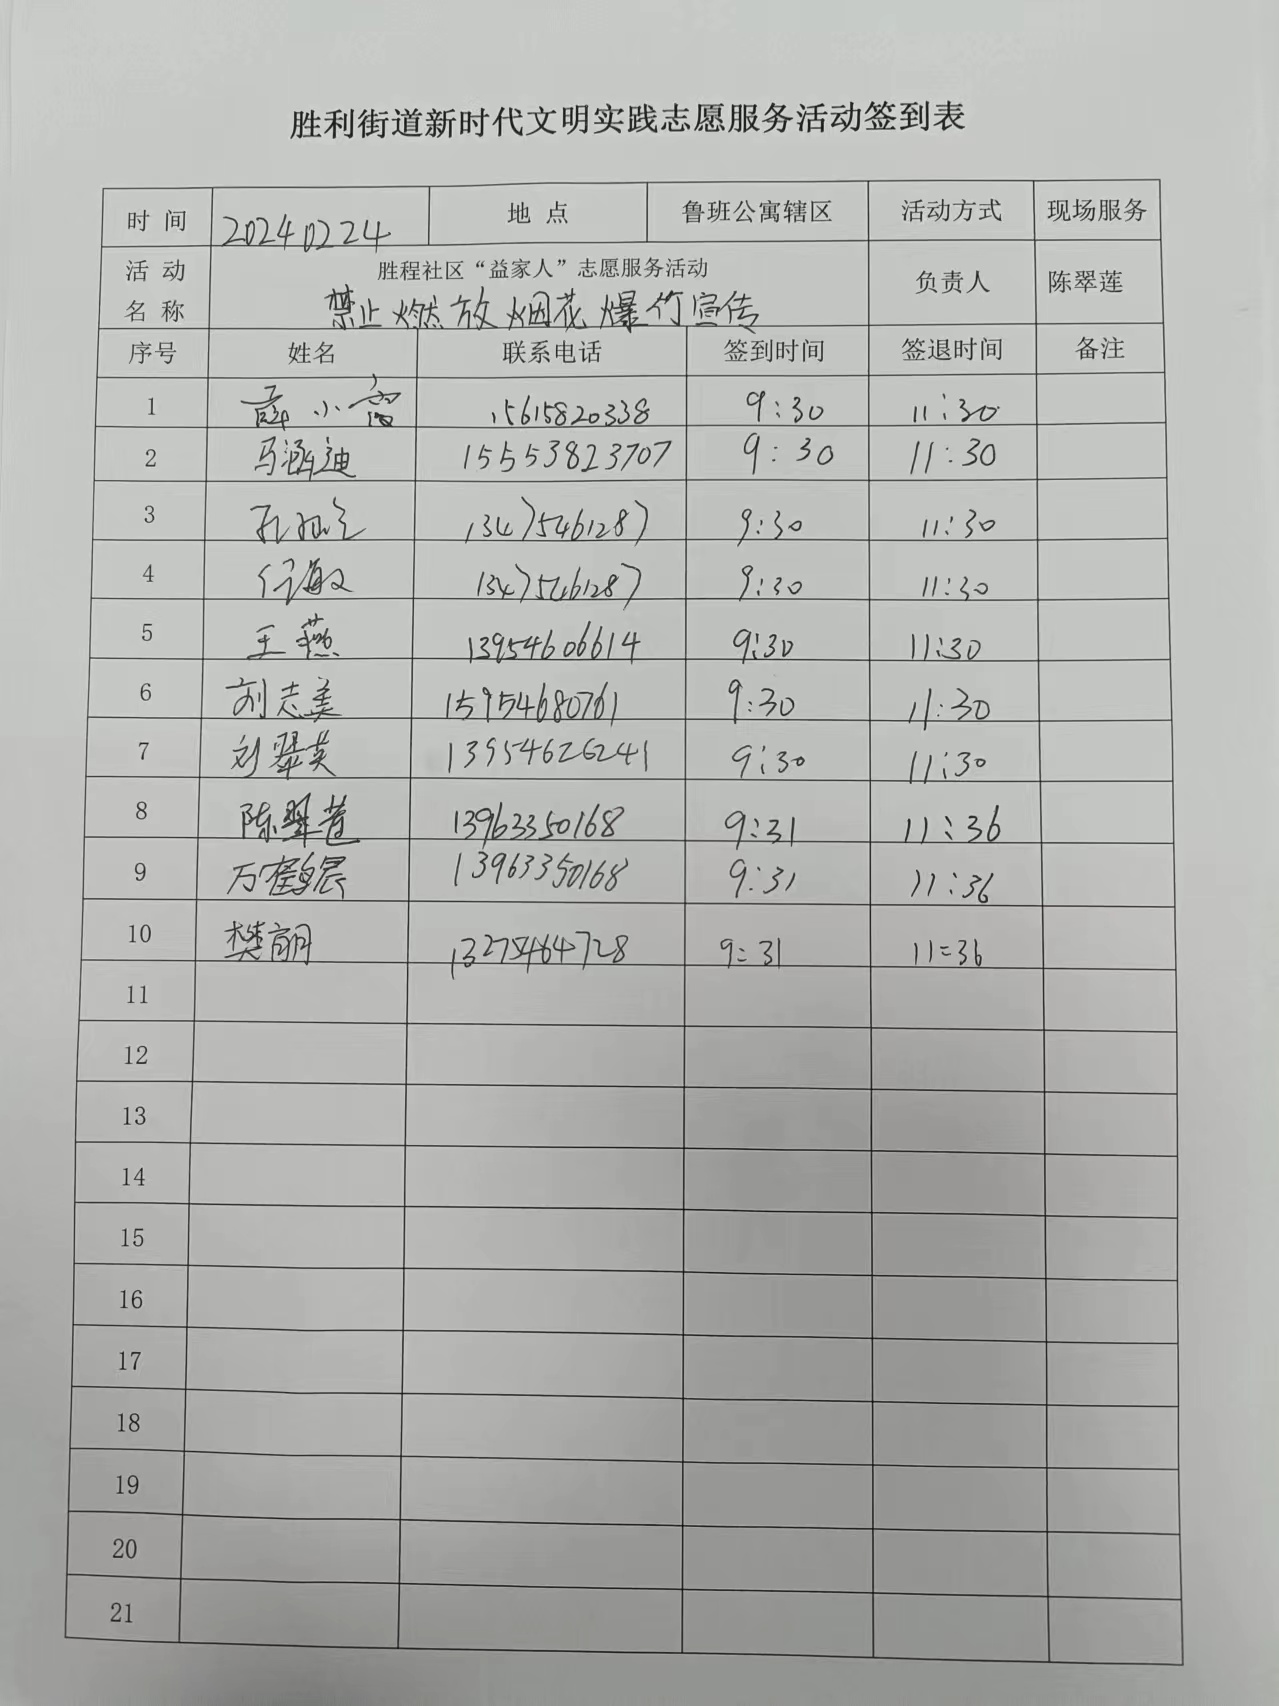 胜利街道新时代文明实践志愿服务活动签到表
时 间 20240224 地 点 鲁班公寓辖区 活动方式 现场服务
活 动 名 称 胜程社区“益家人”志愿服务活动 负责人 陈翠莲
禁止燃放烟花爆竹宣传
序号 姓名 联系电话 签到时间 签退时间 备注
1 薛小富 15615820338 9:30 11:30
2 马涵迪 15553823707 9:30 11:30
3 13475461287 9:30 11:30
4 任海霞 13475461287 9:30 11:30
5 王燕 13954606614 9:30 11:30
6 刘志美 15954680761 9:30 11:30
7 刘翠英 13954626241 9:30 11:30
8 陈翠莲 13963350168 9:31 11:36
9 万鹤晨 13963350168 9:31 11:36
10 樊萌 13275464728 9:31 11:36
11
12
13
14
15
16
17
18
19
20
21